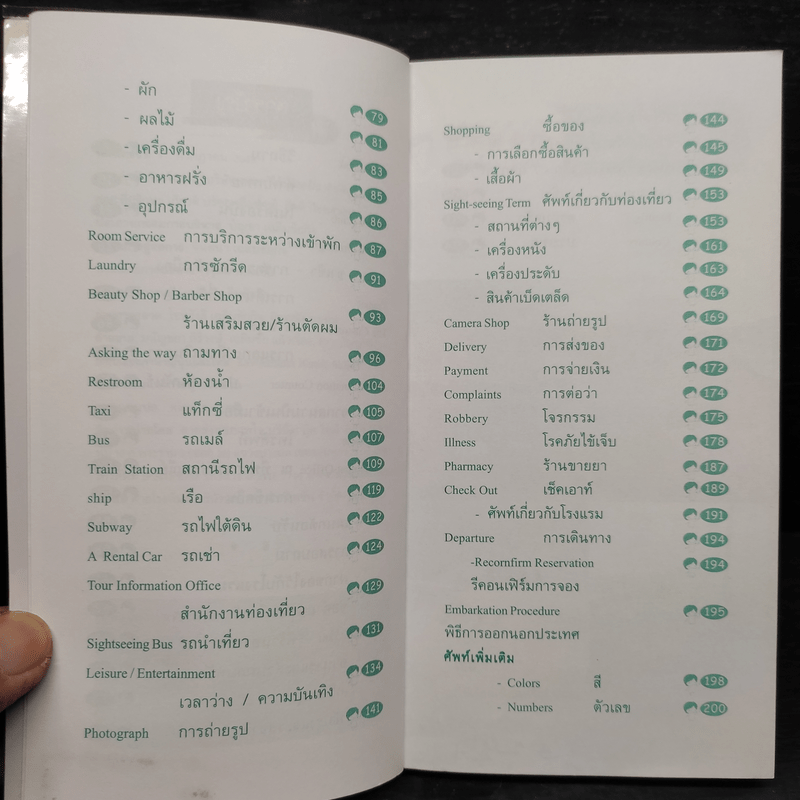 - ผัก 79
- ผลไม้ 81
- เครื่องดื่ม 83
- อาหารฝรั่ง 85
- อุปกรณ์ 86
Room Service การบริการระหว่างเข้าพัก 87
Laundry การซักรีด 91
Beauty Shop / Barber Shop
ร้านเสริมสวย/ร้านตัดผม 93
Asking the way ถามทาง 96
Restroom ห้องน้ำ 104
Taxi แท็กซี่ 105
Bus รถเมล์ 107
Train Station สถานีรถไฟ 109
ship เรือ 119
Subway รถไฟใต้ดิน 122
A Rental Car รถเช่า 124
Tour Information Office 129
สำนักงานท่องเที่ยว
Sightseeing Bus รถนำเที่ยว 131
Leisure / Entertainment 134
เวลาว่าง / ความบันเทิง
Photograph การถ่ายรูป 141
Shopping ซื้อของ 144
- การเลือกซื้อสินค้า 145
- เสื้อผ้า 149
Sight-seeing Term ศัพท์เกี่ยวกับท่องเที่ยว 153
- สถานที่ต่างๆ 153
- เครื่องหนัง 161
- เครื่องประดับ 163
- สินค้าเบ็ดเตล็ด 164
Camera Shop ร้านถ่ายรูป 169
Delivery การส่งของ 171
Payment การจ่ายเงิน 172
Complaints การต่อว่า 174
Robbery โจรกรรม 175
Illness โรคภัยไข้เจ็บ 178
Pharmacy ร้านขายยา 187
Check Out เช็คเอาท์ 189
- ศัพท์เกี่ยวกับโรงแรม 191
Departure การเดินทาง 194
-Recornfirm Reservation 194
รีคอนเฟิร์มการจอง
Embarkation Procedure 195
พิธีการออกนอกประเทศ
ศัพท์เพิ่มเติม
- Colors สี 198
- Numbers ตัวเลข 200